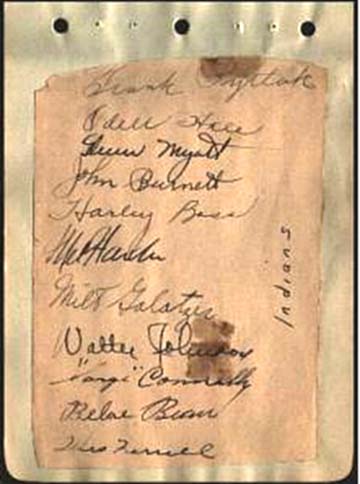 Frank Pytlak
Odell Hale
Glenn Myatt
John Burnett
Harley Boss
Mel Harder
Milt Galatzer
Walter Johnson
Connolly
Beloe Bean
Wes Ferrell
Indians